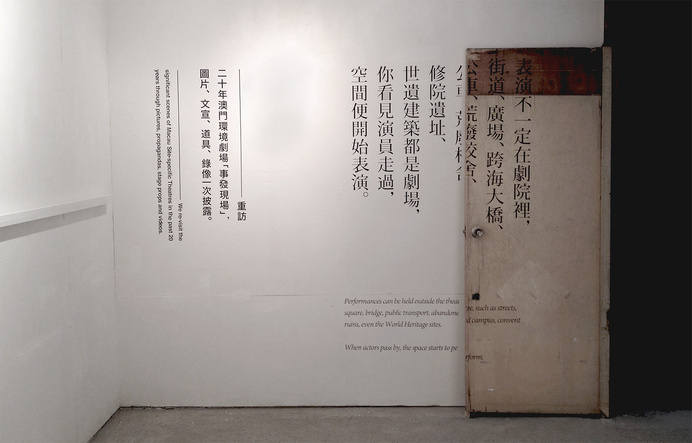 表演不一定在劇院裡，
街道、廣場、跨海大橋、
公車、荒廢校舍、
修院遺址、
世遺建築都是劇場，
你看見演員走過，
空間便開始表演。
Performances can be held outside the theatre, such as streets,
square, bridge, public transport, abandoned campus, convent
ruins, even the World Heritage sites.
When actors pass by, the space starts to perform.
重訪
二十年澳門環境劇場「事發現場」，
圖片、文宣、道具、錄像一次披露。
We re-visit the
significant scenes of Macau Site-specific Theatres in the past 20
years through pictures, propagandas, stage props and videos.